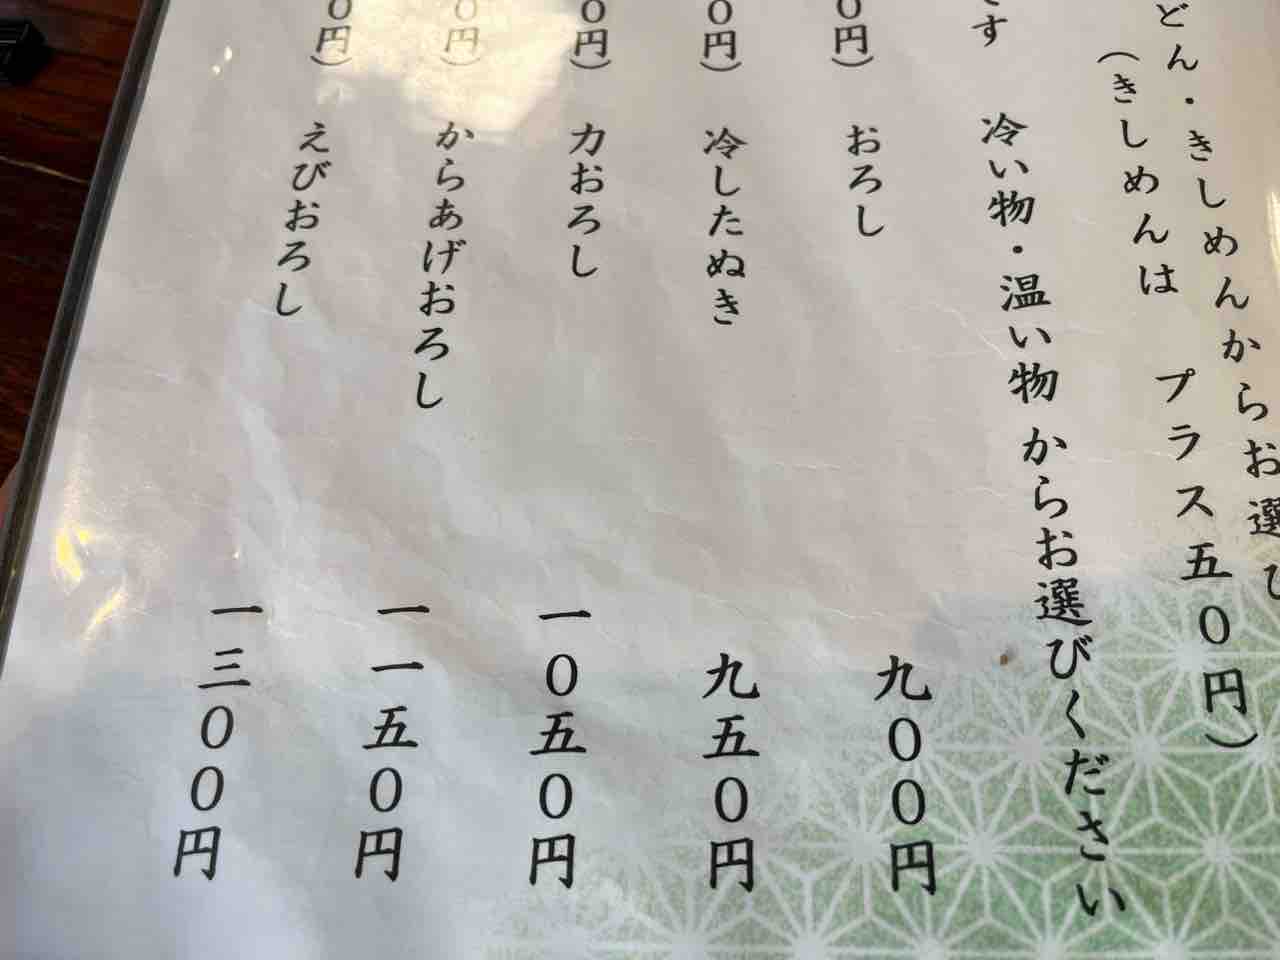 どん・きしめんからお選び
(きしめんは プラス五〇円)
です 冷い物・温い物 からお選びください
〇円) おろし 九〇〇円
〇円) 冷したぬき 九五〇円
〇円) 力おろし 一〇五〇円
〇円) からあげおろし 一一五〇円
〇円) えびおろし 一三〇〇円